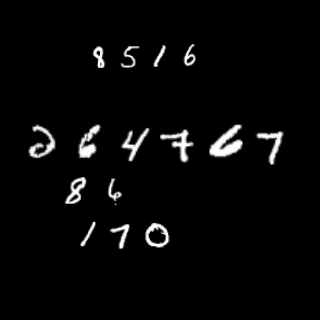 8516
264767
86
170